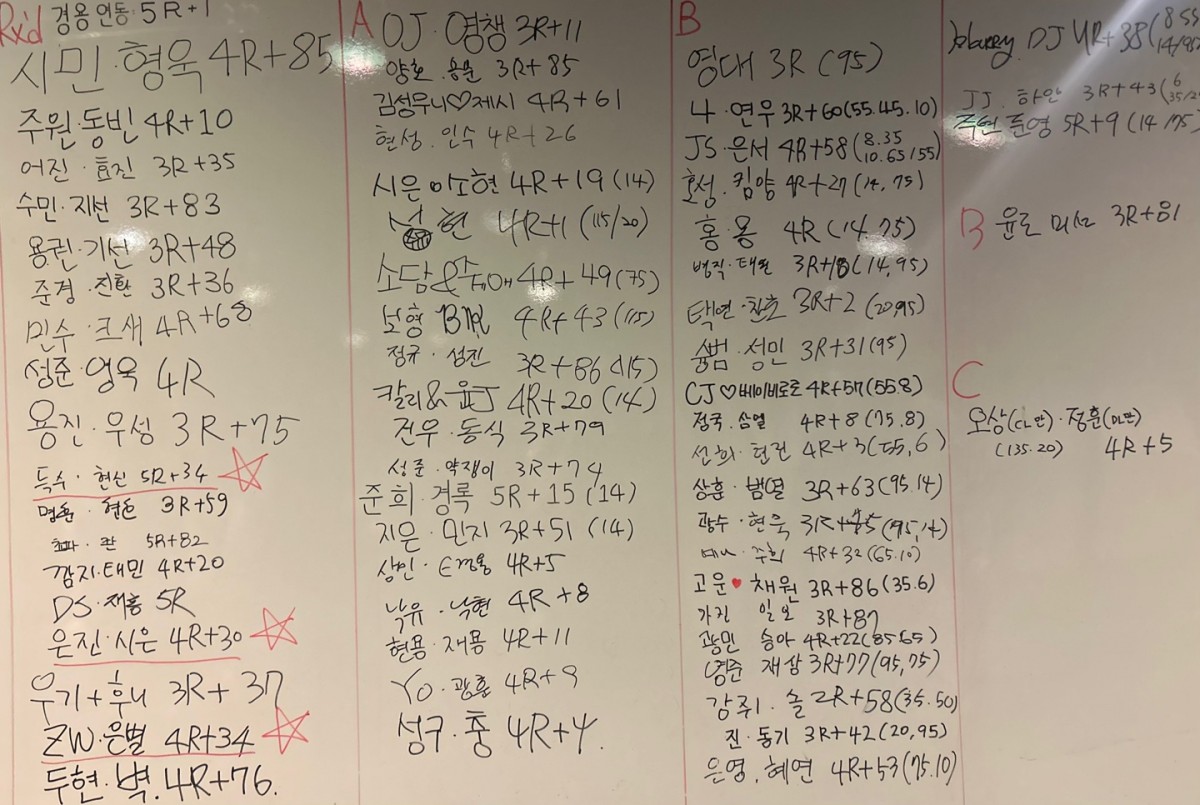 Rx'd
경용 연동 5R+1
시민·형욱 4R+85
주원·동빈 4R+10
어진·효진 3R+35
수민·지선 3R+83
용권·기선 3R+48
준경·진환 3R+36
민수·크새 4R+68
성준·영욱 4R
용진·우성 3R+75
득수·현신 5R+34
3R+59
5R+82
깜지·태민 4R+20
DS·재홍 5R
은진·시은 4R+30
우기+후니 3R+37
ZW·은별 4R+34
두현·벽. 4R+76.
A
OJ·영챙 3R+11
양호·용운 3R+85
김성무니♡제시 4R+61
현성·인수 4R+26
시은 이소현 4R+19 (14)
현 4R+1 (115/20)
소담& 4R+49 (75)
보형 4R+43 (115)
정규·성진 3R+86 (115)
칼리&윤J 4R+20 (14)
건우·동식 3R+79
성준·약쟁이 3R+74
준희·경록 5R+15 (14)
지은·민지 3R+51 (14)
상인· 4R+5
낙유·낙현 4R+8
현용·재용 4R+11
Yo·광훈 4R+9
성구·중 4R+4.
B
영대 3R (95)
나·연우 3R+60 (55.45.10)
JS·은서 4R+58 (8.35 10.65/55)
호성·킴양 4R+27 (14, 75)
홍·용 4R (14 75)
병직·태원 3R+18 (14, 95)
택연·찬호 3R+2 (20,95)
슘범·성민 3R+31 (95)
CJ♡베이비로즈 4R+57 (55.8)
정국·삼열 4R+8 (75.8)
선희· 4R+3 (55, 6)
상훈·범열 3R+63 (95.14)
광수·현욱 (95,14)
주희 4R+32 (65.10)
고운♥채원 3R+86 (35.6)
가진 3R+87
광민 승아 4R+22 (85.65)
경준 재상 3R+77 (95,75)
강쥐·솔 2R+58 (35.50)
진·동기 3R+42 (20,95)
은영.혜연 4R+53 (75.10)
DJ 4R+38 (8 55
JJ. 하얀 3R+43 (6
주현 준영 5R+9 (14 75)
B
윤로 미선 3R+81
C
오상(CL만)·정훈(DL만)
(135.20) 4R+5